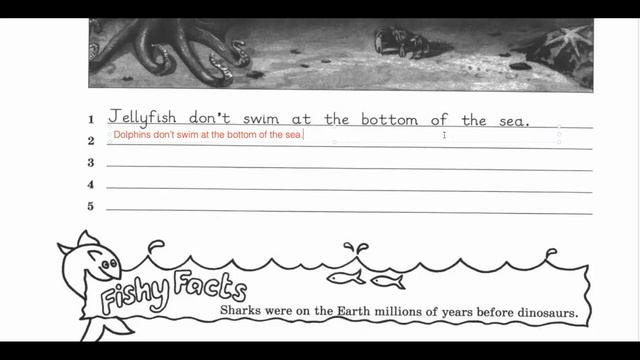 1 Jellyfish don't swim at the bottom of the sea.
2 Dolphins don't swim at the bottom of the sea.
3
4
5
Fishy Facts
Sharks were on the Earth millions of years before dinosaurs.